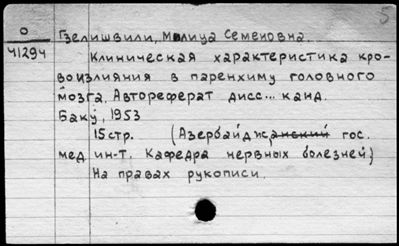 5
О
41294
Гзелишвили, Малица Семеновна.
Клиническая характеристика кро-
воизлияния в паренхиму головного
мозга. Автореферат дисс... канд.
Баку, 1953
15стр. (Азербайджанский гос.
мед ин-т. Кафедра нервных болезней)
На правах рукописи.